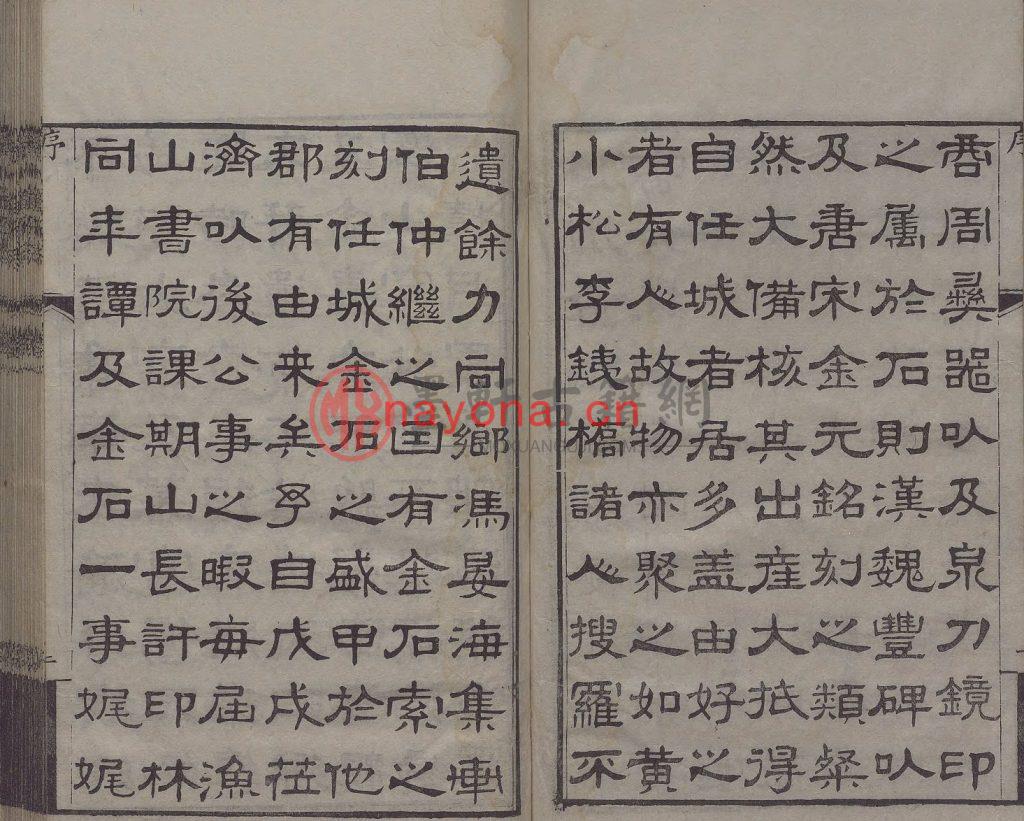 序
商周彝器以及泉刀鏡印
之属於石則漢魏豐碑以
及唐宋金元銘刻之類粲
然大備核其出産大抵得
自任城者居多盖由好之
者有人故物亦聚之如黄
小松李鐵橋諸人搜羅不
遺餘力同鄉馮晏海集
伯仲繼之国有金石索之
刻任城金石之盛甲於他
郡有由来矣予自戊戌莅
濟以後公事之暇每届漁
山書院課期山長許印林
同年譚及金石一事娓娓
序
nayona.cn